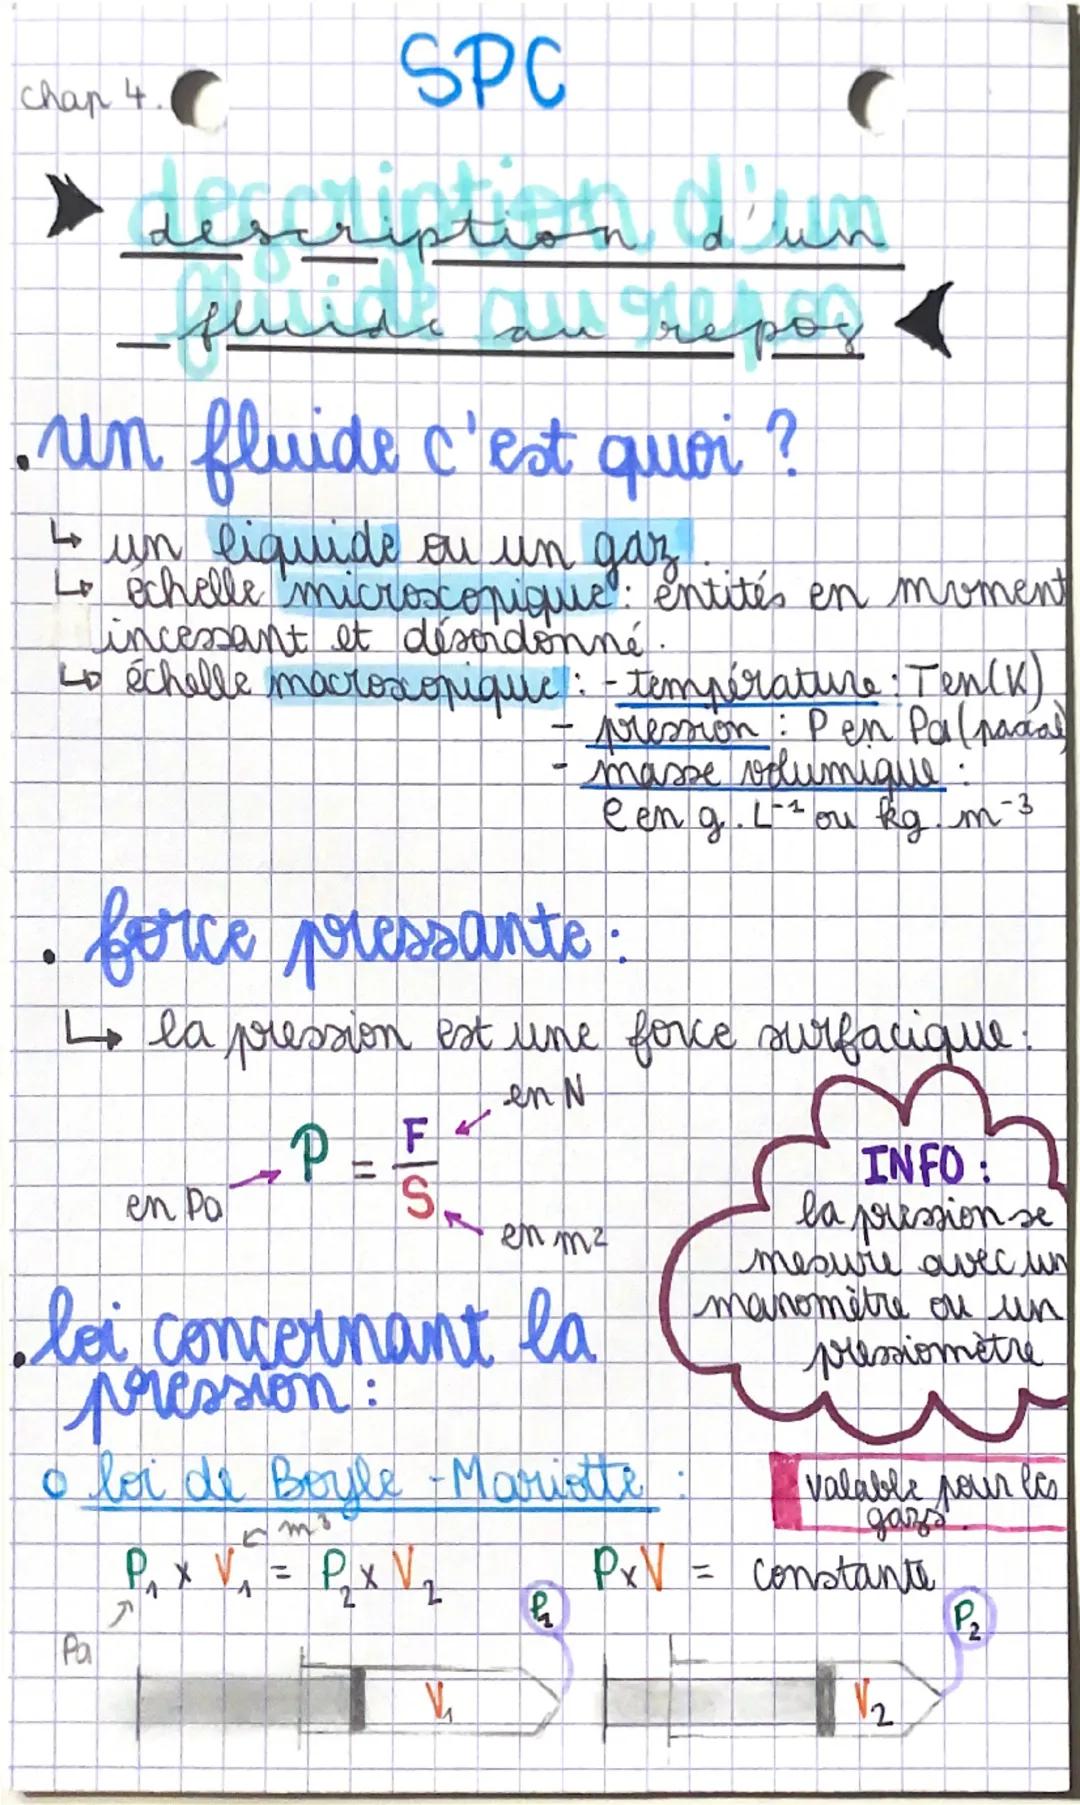 SPC
chap 4.
description d'un
fluide au repos
. un fluide c'est quoi ?
↳ un liquide ou un gaz.
↳ échelle microscopique : entités en mvment
incessant et désordonné.
↳ échelle macroscopique : - température : T en (K)
- pression : P en Pa (pascal)
- masse volumique :
ρ en g.L⁻¹ ou kg.m⁻³
. force pressante :
↳ la pression est une force surfacique :
en N
P = F/S
en Pa
en m²
INFO :
la pression se
mesure avec un
manomètre ou un
pressiomètre
. loi concernant la
pression :
o loi de Boyle-Mariotte :
valable pour les
gazs.
m³
P₁ x V₁ = P₂ x V₂
PxV = constante
Pa
P₁
V₁
P₂
V₂